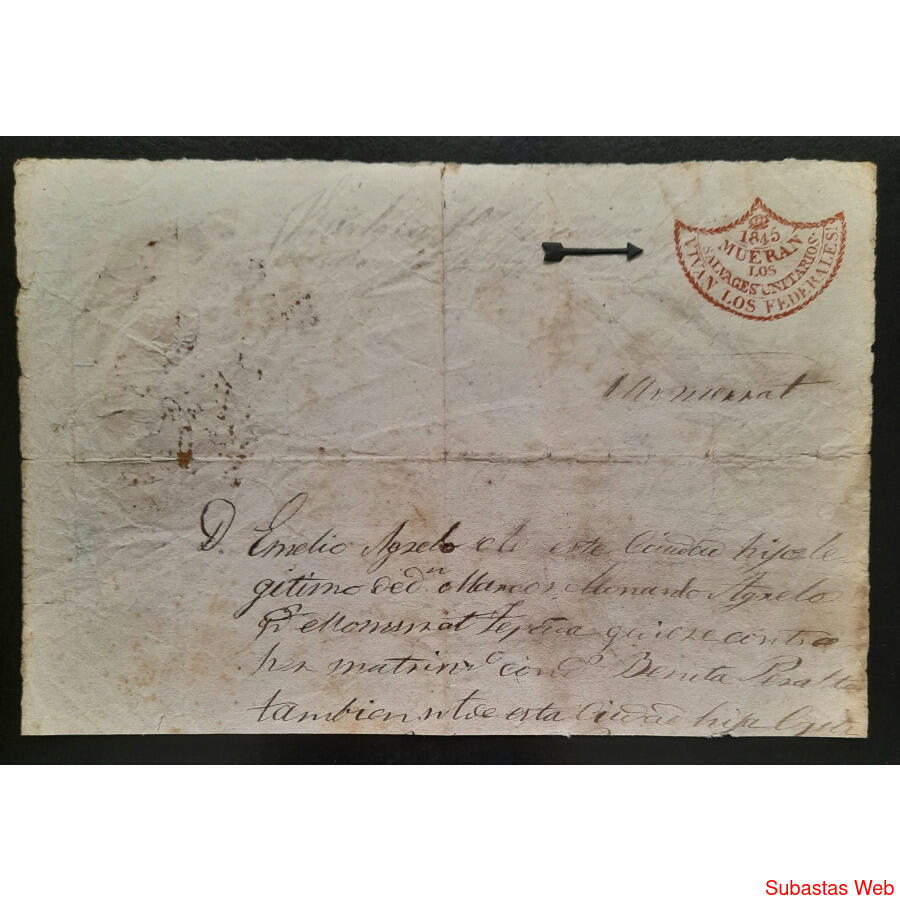 1845
MUERAN
LOS
SALVAGES UNITARIOS.
VIVAN LOS FEDERALES!
Monserrat
D. Emelio Agrelo de este Ciudad hijo le
gitimo de dn. Marcos Agrelo
Monserrat quiere contra
her matrimo. con da. Benita Peralta
tambien nt. de esta Ciudad hija
Subastas Web